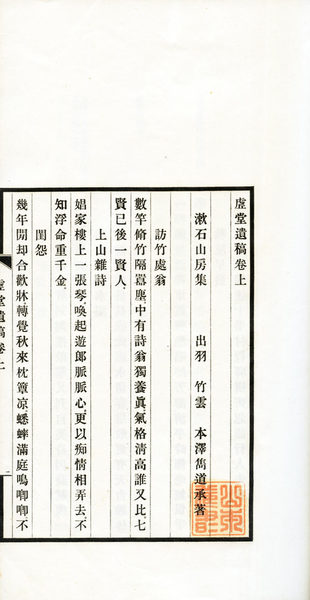 虛堂遺稿卷上
漱石山房集　出羽　竹雲　本澤雋道承著
訪竹處翁
數竿脩竹隔囂塵中有詩翁獨養眞氣格淸高誰又比七
賢已後一賢人
上山雜詩
娼家樓上一張琴喚起遊郞脈脈心更以痴情相弄去不
知浮命重千金
閨怨
幾年閒却合歡牀轉覺秋來枕簟凉蟋蟀滿庭鳴唧唧不
虛堂遺稿卷上
一